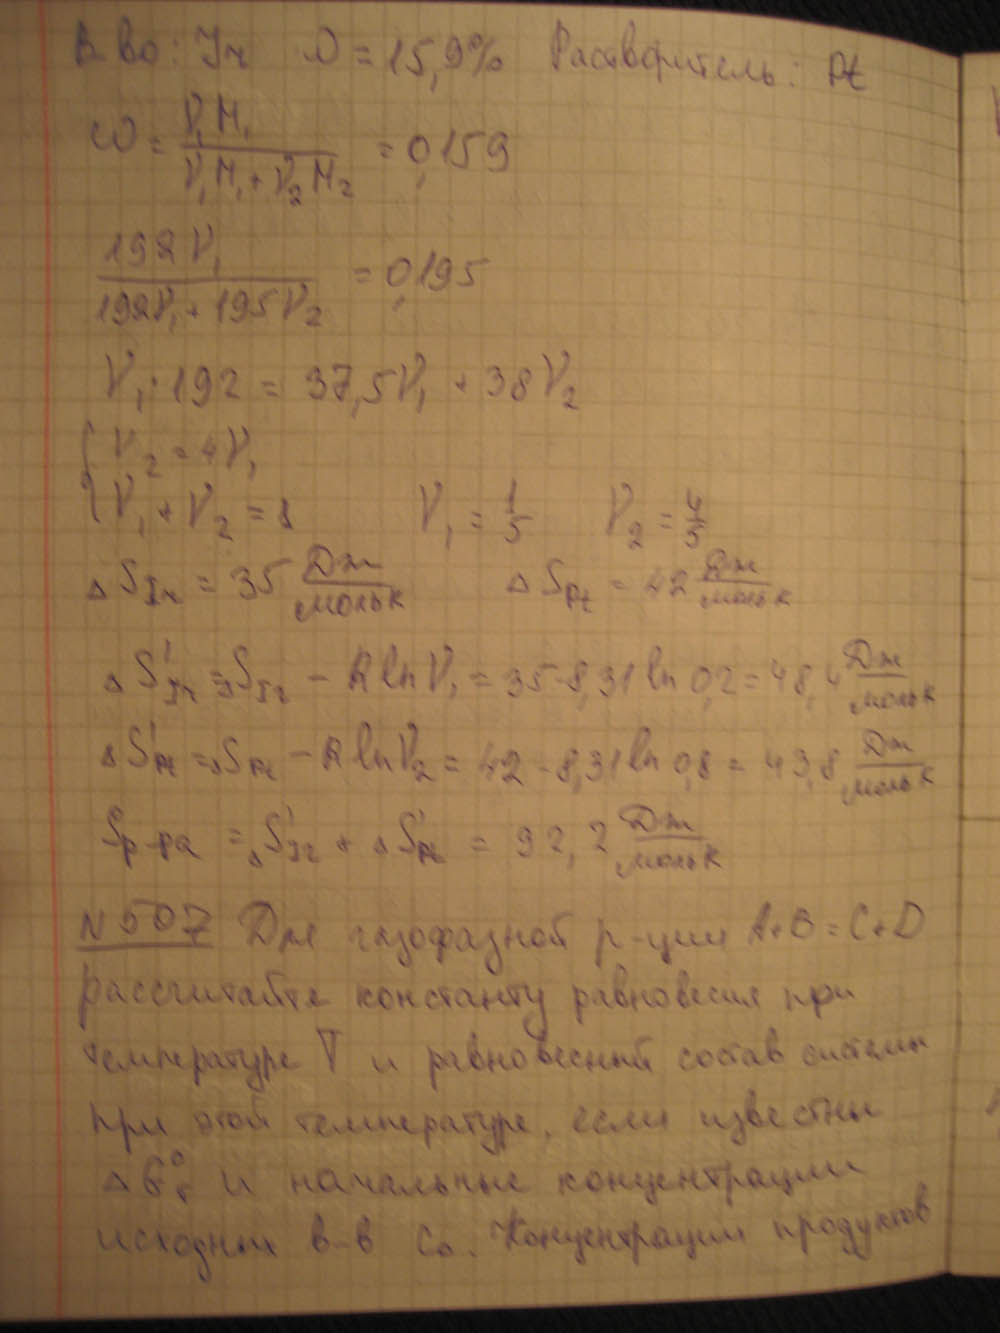 В-во: Ir ω = 15,9% Растворитель: Pt
ω = ν₁M₁ / (ν₁M₁ + ν₂M₂) = 0,159
192ν₁ / (192ν₁ + 195ν₂) = 0,195
ν₁·192 = 37,5ν₁ + 38ν₂
{ ν₂ = 4ν₁
{ ν₁ + ν₂ = 1 ν₁ = 1/5 ν₂ = 4/5
ΔS_Ir = 35 Дж/моль·К ΔS_Pt = 42 Дж/моль·К
ΔS'_Ir = ΔS_Ir − R ln ν₁ = 35 − 8,31 ln 0,2 = 48,4 Дж/моль·К
ΔS'_Pt = ΔS_Pt − R ln ν₂ = 42 − 8,31 ln 0,8 = 43,8 Дж/моль·К
S_р-ра = ΔS'_Ir + ΔS'_Pt = 92,2 Дж/моль·К
N 507 Для газофазной р-ции A+B = C+D
рассчитайте константу равновесия при
температуре T и равновесный состав системы
при этой температуре, если известны
ΔG°_T и начальные концентрации
исходных в-в C₀. Концентрации продуктов